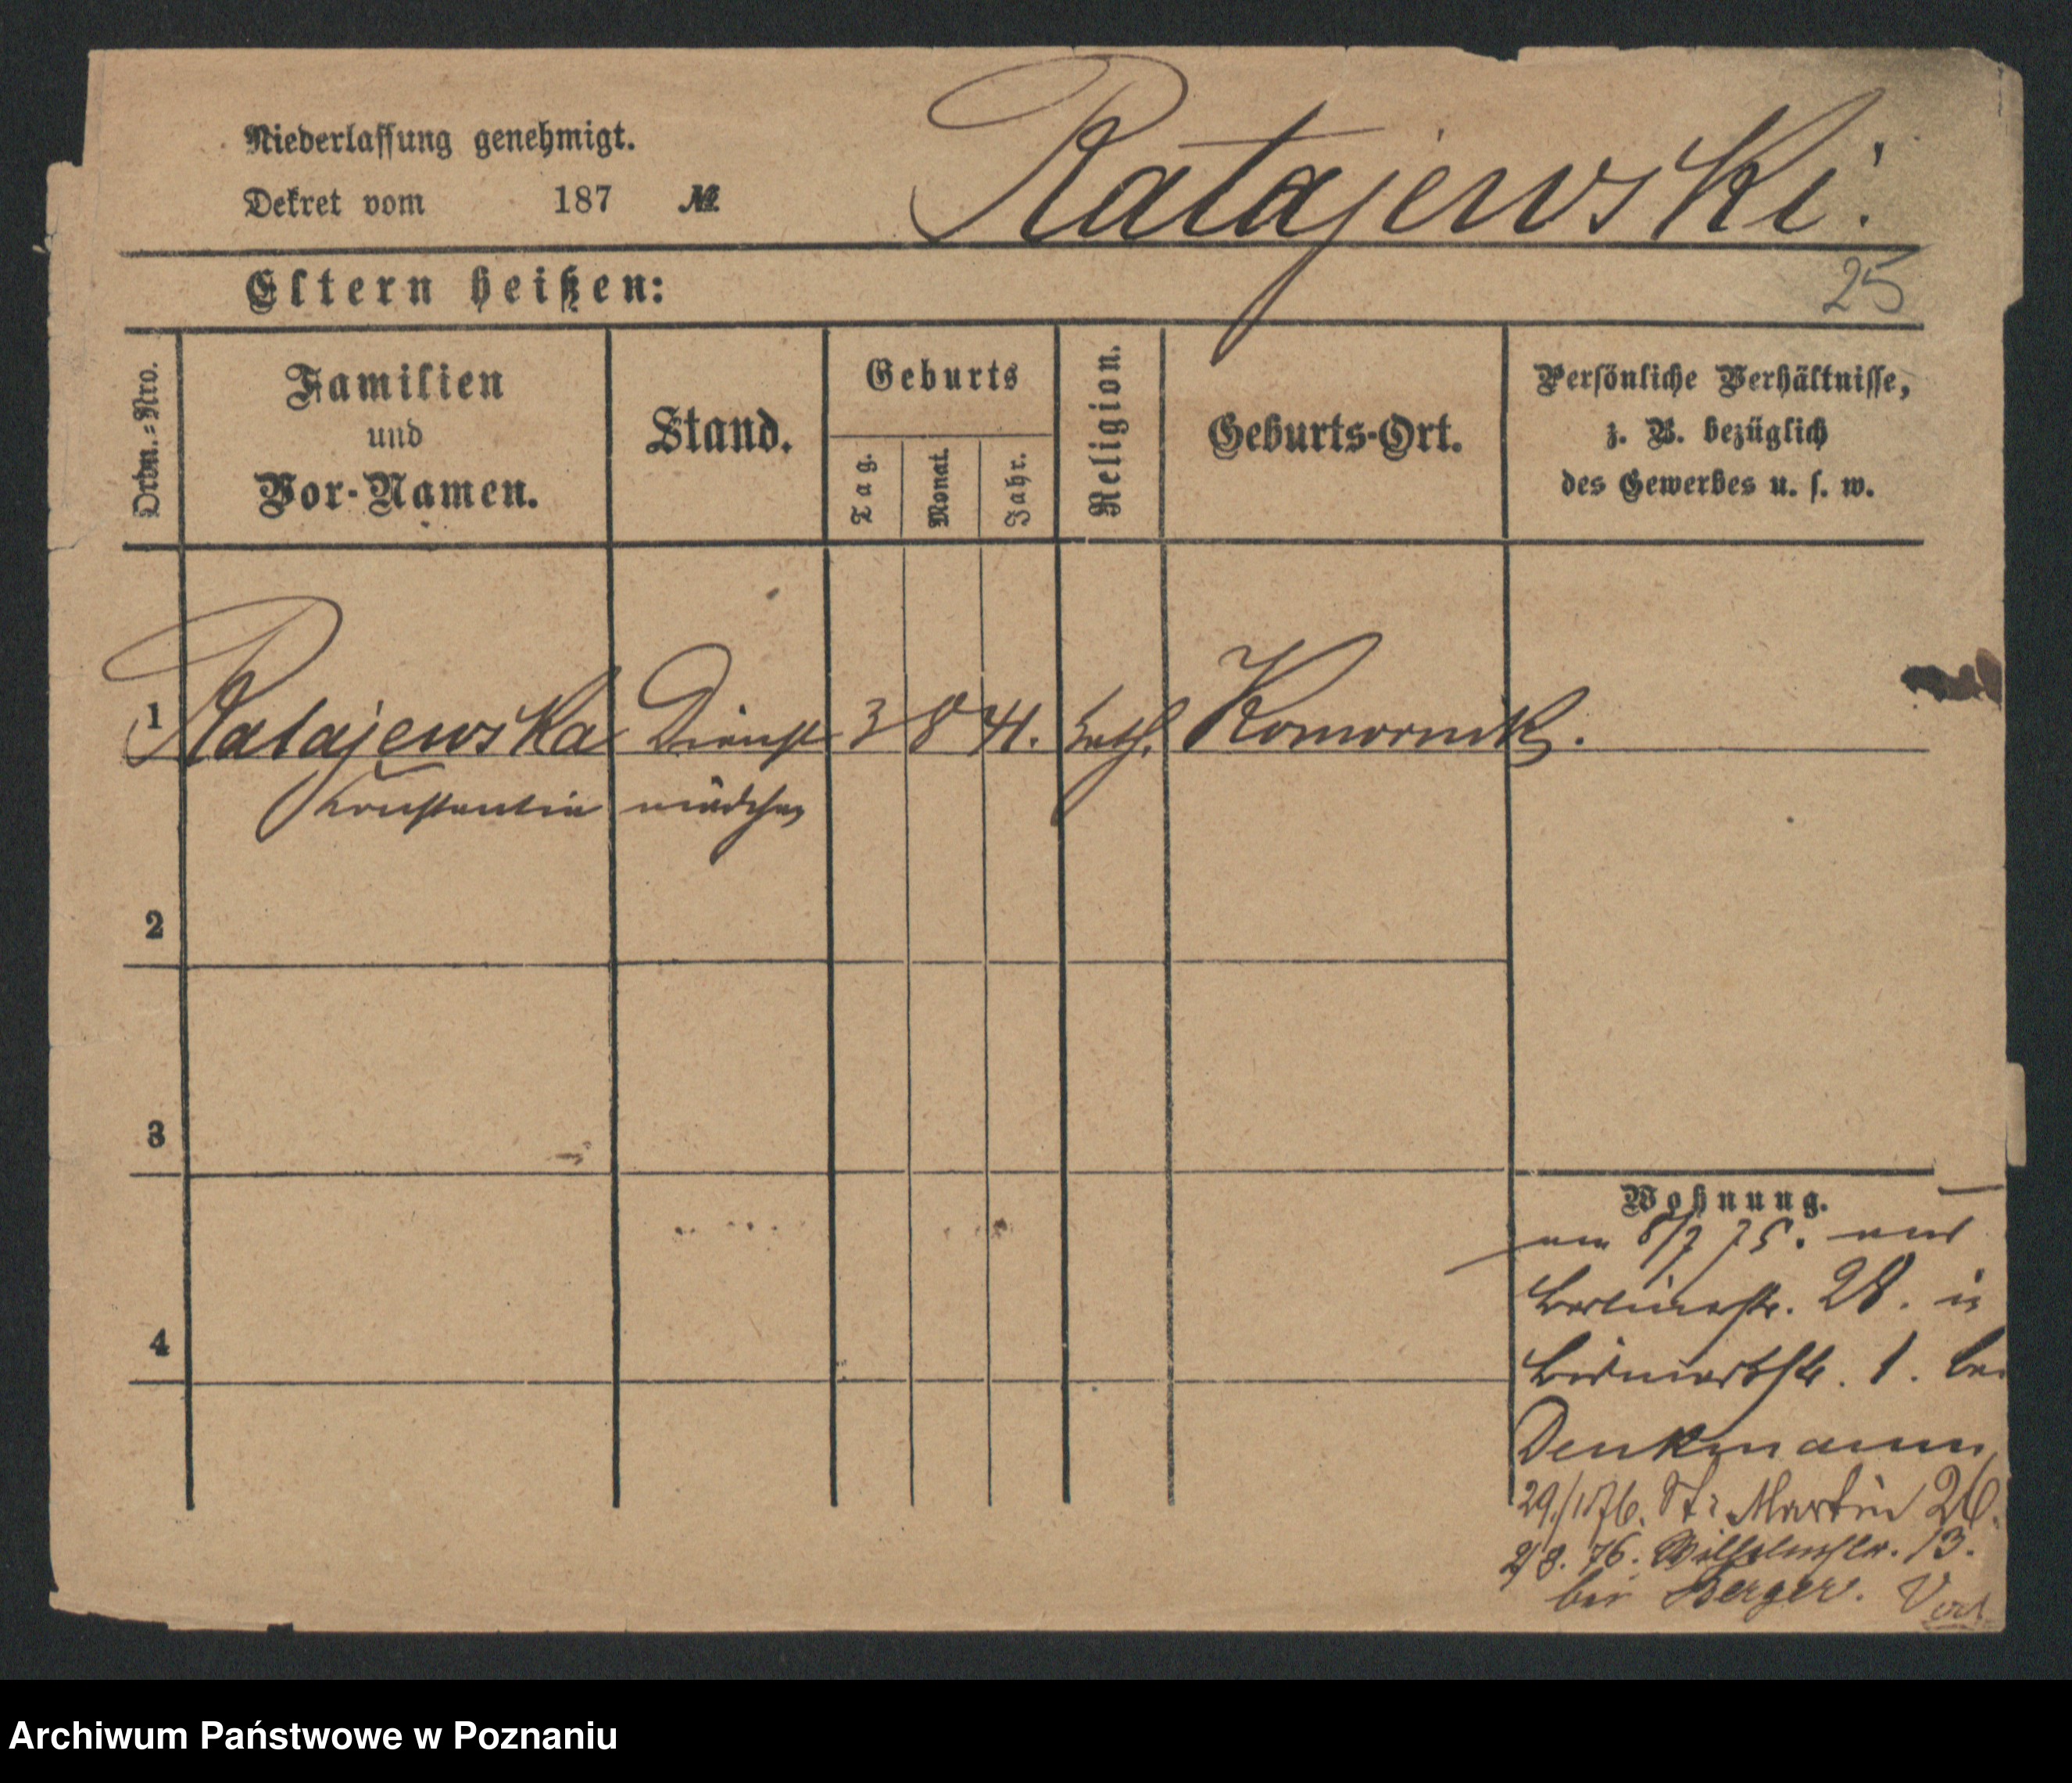 Niederlassung genehmigt.
Dekret vom 187 №
Ratajewski.
Eltern heißen:
25
Ordn.-Nro.
Familien
und
Vor-Namen.
Stand.
Geburts
Tag.
Monat.
Jahr.
Religion.
Geburts-Ort.
Persönliche Verhältnisse,
z. B. bezüglich
des Gewerbes u. s. w.
1 Ratajewska Dienst 3 8 41. kath. Komornik.
Konstantia mädchen
2
3
4
Wohnung.
am 8/7 75. aus
Berlinerstr. 28. in
Bismarkstr. 1. bei
Denkmann
29/1 76. St. Martin 26.
2/8. 76. Wilhelmstr. 13.
bei Berger.
Archiwum Państwowe w Poznaniu